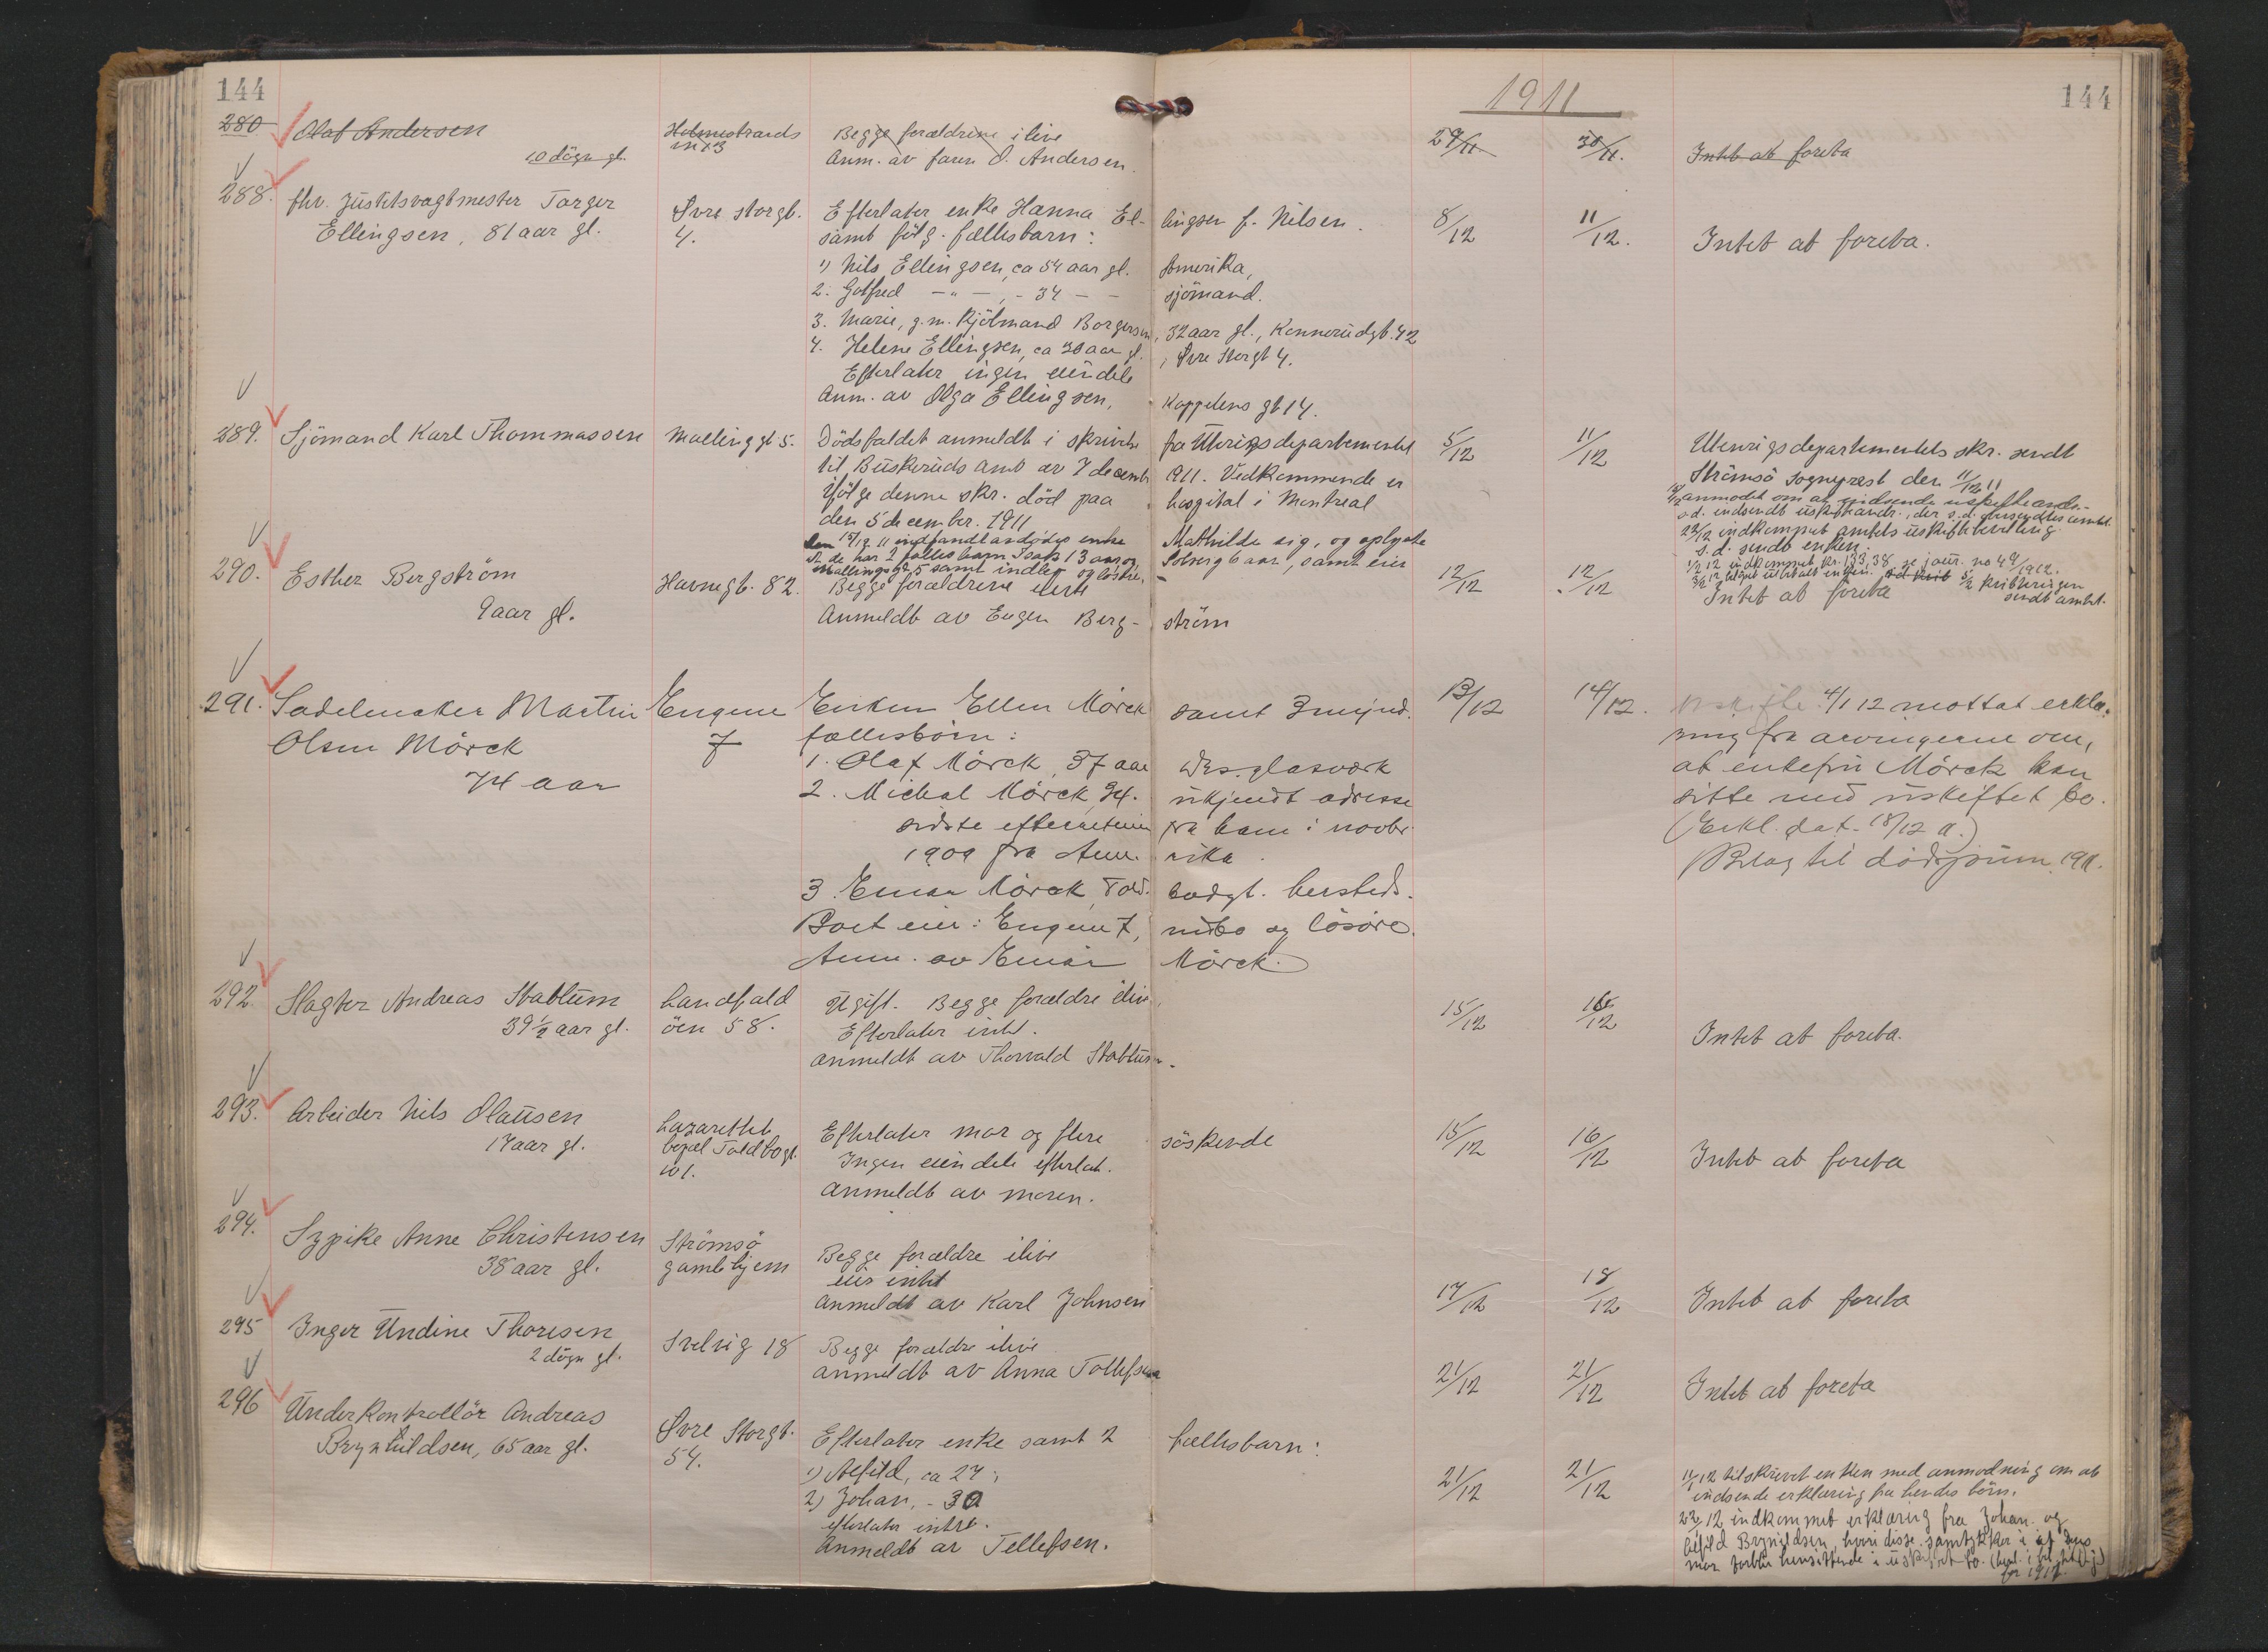 144
1911
144
280 Olaf Andersen Holmestrands Begge forældrene ilive 29/11 30/11. Intet at foreta
10 døgn gl. Anm. av faren O. Andersen.
288. fhv. Justitsvagtmester Torger Øvre Storgt. Efterlater enke Hanna Ellingsen f. Nilsen. 8/12 11/12.
Ellingsen, 81 aar gl. 4. samt følg. fællesbarn: Intet at foreta.
1) Nils Ellingsen, ca 54 aar gl. Amerika,
2. Gotfred -"-, - 34 - - sjømand.
3. Marie, g.m. Kjølmand Borgersen, 32 aar gl., Konnerudgt. 42
4. Helene Ellingsen, ca 30 aar gl., Øvre Storgt 4.
Efterlater ingen eiendele
Anm. av Olga Ellingsen, Kappelens gt 14.
289. Sjömand Karl Thommassen Mællinggt 5. Dødsfaldet anmeldt i skrivelse fra Utenrigsdepartementet 5/12 11/12 Utenrigsdepartementets skr. sendt
til Buskeruds amt av 7 decemb 1911. Vedkommende er Strömsö sogneprest den 11/12 11
ifølge denne skr. død paa hospital i Montreal
den 5 december 1911
Mathilde sig, og oplyste
at de har 2 fælles barn Isak 13 aar og Solveig 6 aar, samt eier
Mællingsgt. 5 samt indbo og løsøre.
22/12 indkommet amtets uskiftebevilling
s.d. sendt enken.
290. Esther Bergström Havnegt. 82. Begge forældrene ilive 12/12 12/12 Intet at foreta
9 aar gl. Anmeldt av Eugen Bergström
291. Sadelmaker Martin Engene Enken Ellen Mörck samt 3 mynd. 13/12 14/12. 4/1 12 mottat erklæ-
Olsen Mörck 7 fællesbörn: ring fra arvingerne om,
74 aar 1. Olaf Mörck, 37 aar Drs. glasværk at enkefru Mörck kan
2. Michal Mörck, 34. ukjendt adresse sitte med uskiftet bo.
sidste efterretning fra ham i novbr. (Erkl. dat. 18/12 11.)
1909 fra Amerika. Bilag til dødsjurn. 1911.
3. Einar Mörck, Toldbodgt. hersteds.
Boet eier: Engene 7, indbo og lösöre.
Anm. av Einar Mörck.
292. Slagter Andreas Stablum Landfald Ugift. Begge forældre ilive, 15/12 16/12
39½ aar gl. öen 58. Efterlater intet. Intet at foreta.
anmeldt av Thorvald Stablum.
293. Arbeider Nils Olausen Lazarettet Efterlater mor og flere søskende 15/12 16/12
17 aar gl. bopæl Toldbogt. Ingen eiendele efterlat. Intet at foreta
101. anmeldt av moren.
294. Sypike Anne Christensen Strömsö Begge forældre ilive
38 aar gl. gamlehjem eier intet
anmeldt av Karl Johnsen 17/12 18/12 Intet at foreta
295 Inger Undine Thoresen Svelvig 18 Begge forældre ilive
2 døgn gl. anmeldt av Anna Tollefsen 21/12 21/12 Intet at foreta
296 Underkontrollör Andreas Øvre Storgt. Efterlater enke samt 2 fællesbarn:
Brynhildsen, 65 aar gl. 54.
1) Alfild, ca 27,
2) Johan, - 30 21/12 21/12 11/1 12 tilskrevet enken med anmodning om at
efterlater intet. indsende erklæring fra hendes börn.
Anmeldt av Tellefsen. 22/1 12 indkommet erklæring fra Johan og
Alfild Brynildsen, hvori disse samtykker i at deres
mor forblir hensittende i uskiftet bo.
for 1912.